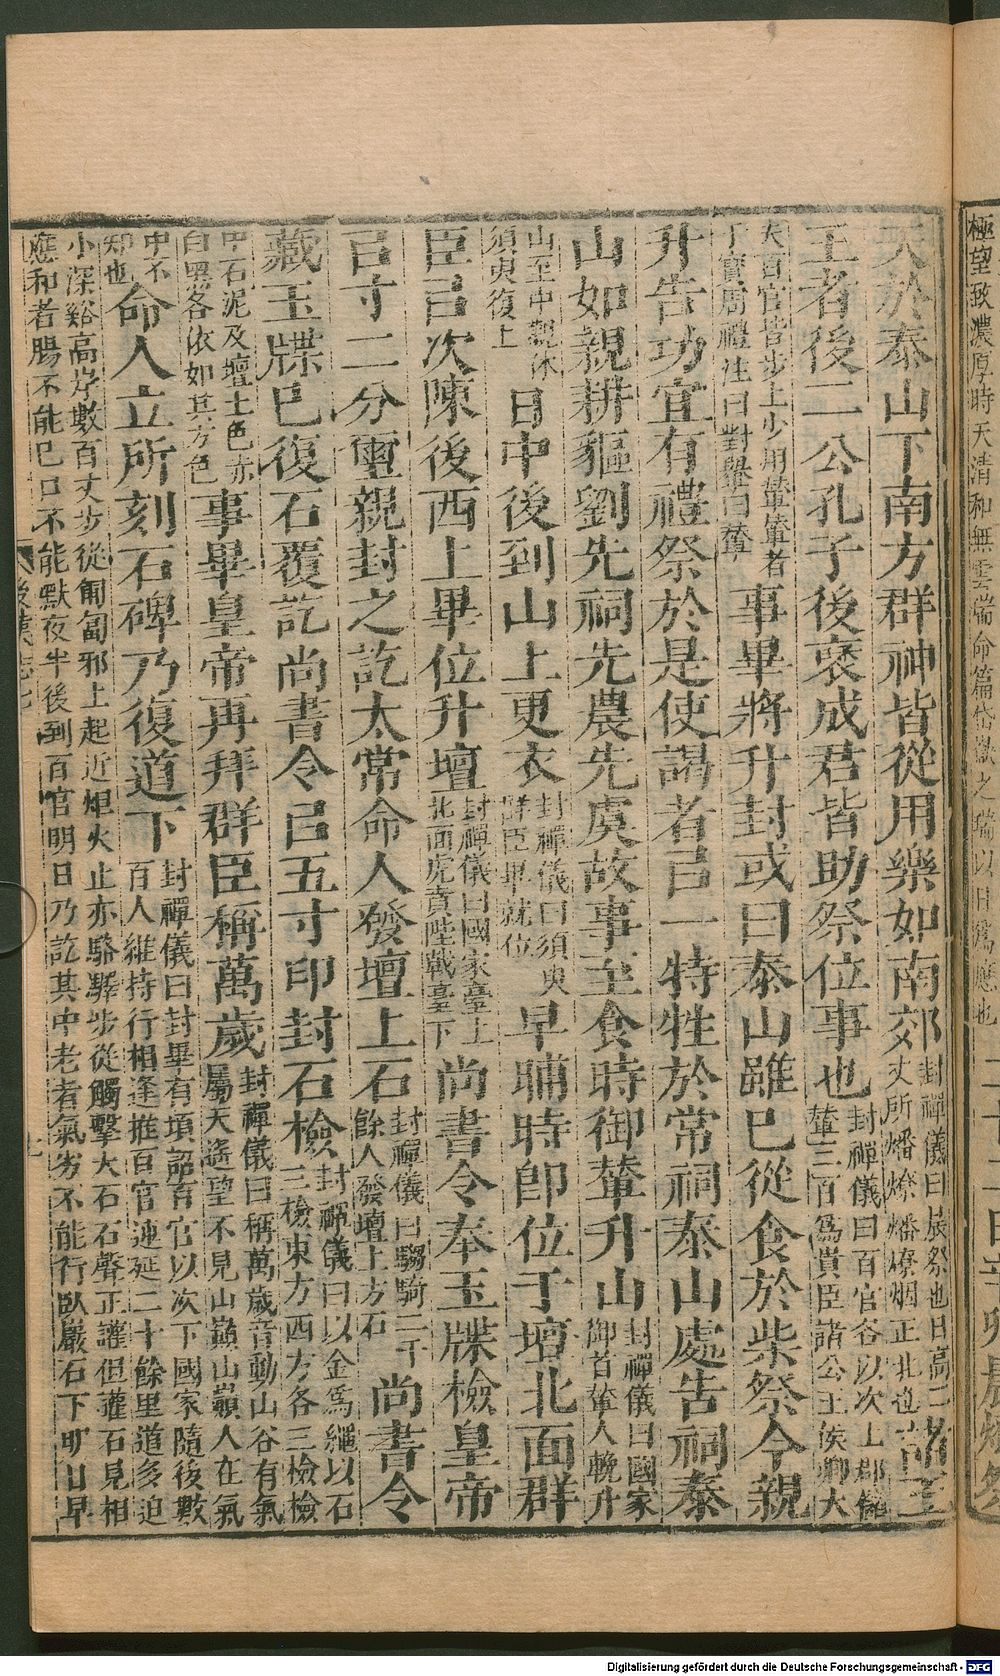 極望致濃厚時天清和無雲瑞命篇岱嶽之瑞以日爲應也 二十二日辛卯晨燎祭
天於泰山下南方群神皆從用樂如南郊封禪儀曰晨祭也日高二丈所燔燎燔燎烟正北也諸王
王者後二公孔子後褒成君皆助祭位事也封禪儀曰百官各以次上郡儲輦三百爲貴臣諸公王侯卿大
夫百官皆步上少用輦輦者丁寶周禮注曰對舉曰輦事畢將升封或曰泰山雖已從食於柴祭今親
升告功宜有禮祭於是使謁者㠯一特牲於常祠泰山處告祠泰
山如親耕貙劉先祠先農先虞故事至食時御輦升山封禪儀曰國家御首輦人輓升
山至中觀休須臾復上日中後到山上更衣封禪儀曰須臾群臣畢就位早晡時即位于壇北面群
臣㠯次陳後西上畢位升壇封禪儀曰國家臺上北面虎賁陛戟臺下尚書令奉玉牒檢皇帝
㠯寸二分璽親封之訖太常命人發壇上石封禪儀曰騶騎二千餘人發壇上方石尚書令
藏玉牒已復石覆訖尚書令㠯五寸印封石檢封禪儀曰以金爲繩以石三檢東方西方各三檢檢
中石泥及壇土色赤白黑各依如其方色事畢皇帝再拜群臣稱萬歲封禪儀曰稱萬歲音動山谷有氣屬天遙望不見山巔山巔人在氣
中不知也命人立所刻石碑乃復道下封禪儀曰封畢有頃詔百官以次下國家隨後數百人維持行相逢推百官連延二十餘里道多迫
小深谿高岸數百丈步從匍匐邪上起近炬火止亦駱驛步從觸擊大石石聲正讙但讙石見相
應和者腸不能已口不能默夜半後到百官明日乃訖其中老者氣劣不能行臥巖石下明日早
後漢志七
Digitalisierung gefördert durch die Deutsche Forschungsgemeinschaft - DFG